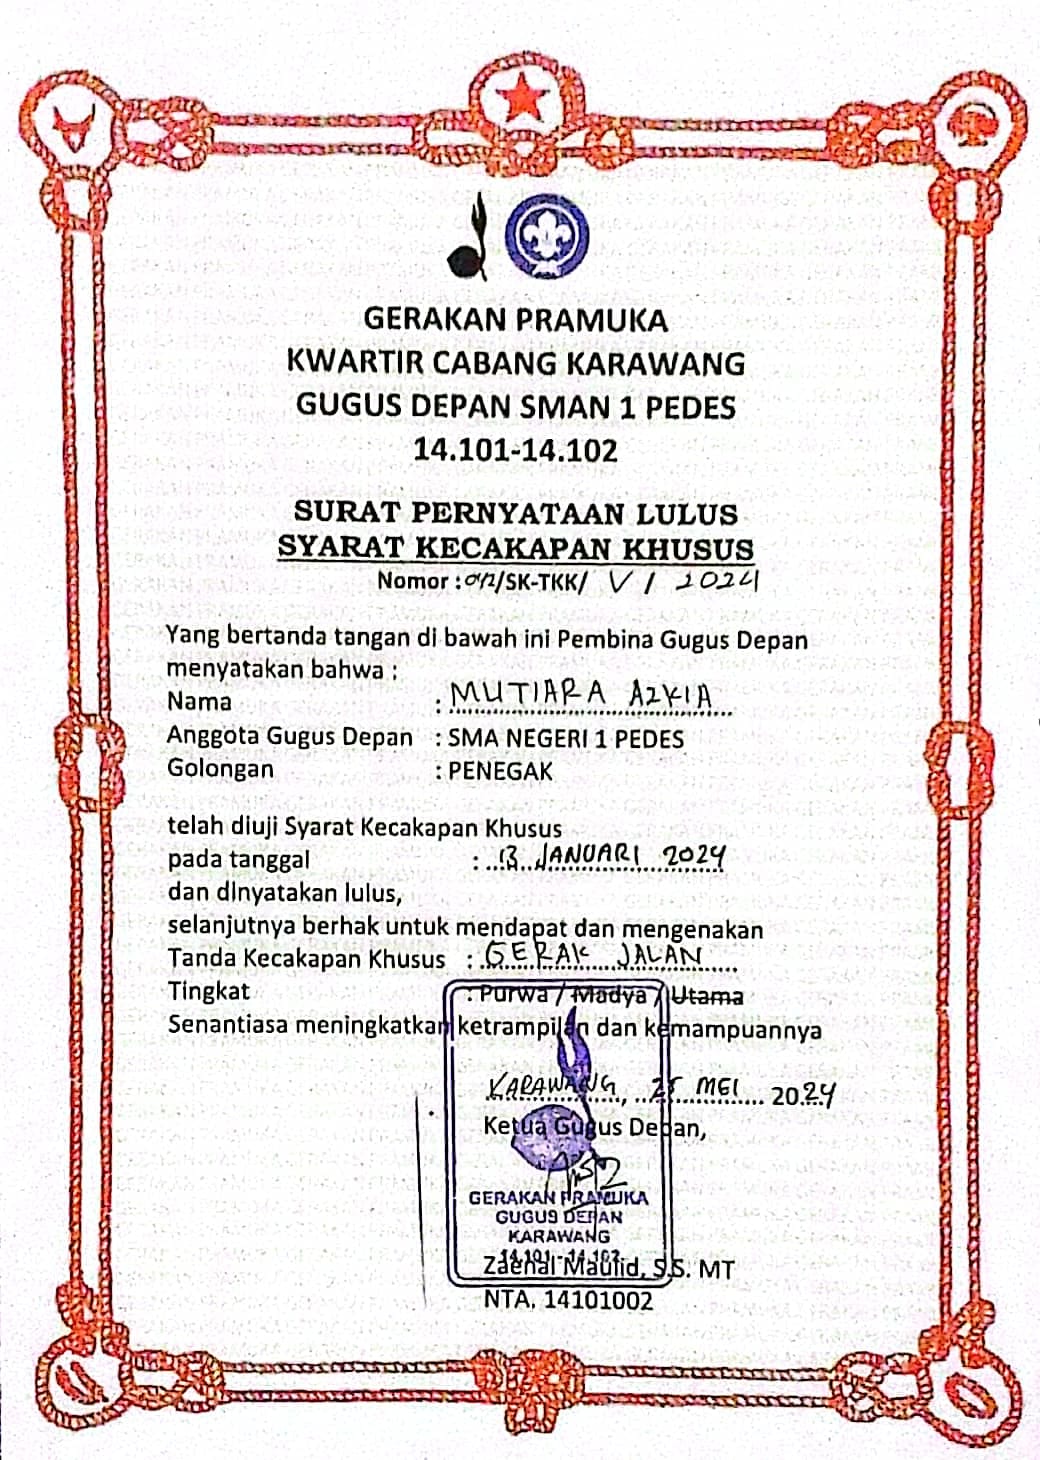 GERAKAN PRAMUKA
KWARTIR CABANG KARAWANG
GUGUS DEPAN SMAN 1 PEDES
14.101-14.102
SURAT PERNYATAAN LULUS
SYARAT KECAKAPAN KHUSUS
Nomor : /SK-TKK/ V / 2024
Yang bertanda tangan di bawah ini Pembina Gugus Depan
menyatakan bahwa :
Nama : MUTIARA AZKIA
Anggota Gugus Depan : SMA NEGERI 1 PEDES
Golongan : PENEGAK
telah diuji Syarat Kecakapan Khusus
pada tanggal : 13 JANUARI 2024
dan dinyatakan lulus,
selanjutnya berhak untuk mendapat dan mengenakan
Tanda Kecakapan Khusus : GERAK JALAN
Tingkat : Purwa / Madya / Utama
Senantiasa meningkatkan ketrampilan dan kemampuannya
KARAWANG, 25 MEI 2024
Ketua Gugus Depan,
GERAKAN PRAMUKA
GUGUS DEPAN
KARAWANG
14.101 - 14.102
Zaenal Maulid, S.S. MT
NTA, 14101002